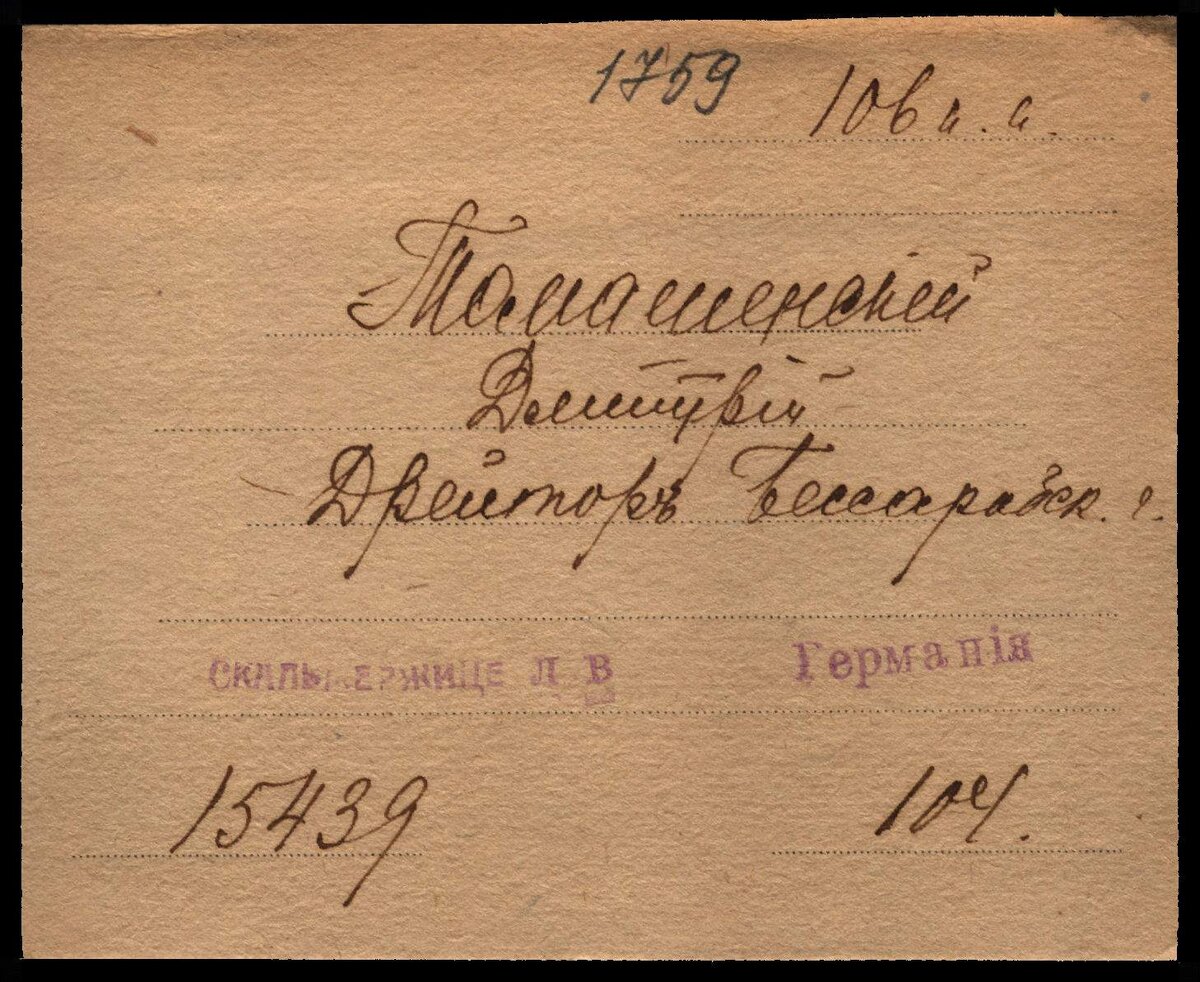 1759 106 п. п.
Томашенскій
Дмитрій
Дрейторъ Бессарабск. г.
СКАЛЬМЕРЖИЦЕ Л В Германія
15439 104.